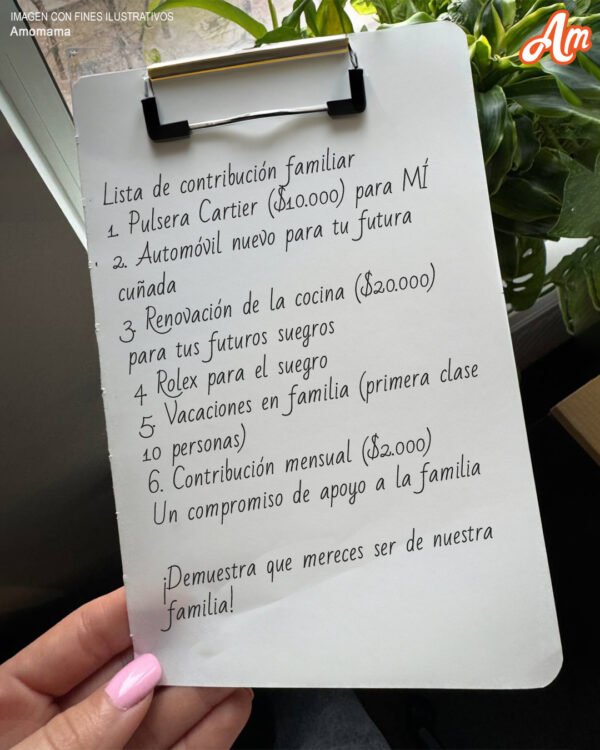 IMAGEN CON FINES ILUSTRATIVOS
Amomama
Am
Lista de contribución familiar
1. Pulsera Cartier ($10.000) para MÍ
2. Automóvil nuevo para tu futura
cuñada
3. Renovación de la cocina ($20.000)
para tus futuros suegros
4 Rolex para el suegro
5. Vacaciones en familia (primera clase
10 personas)
6. Contribución mensual ($2.000)
Un compromiso de apoyo a la familia
¡Demuestra que mereces ser de nuestra
familia!